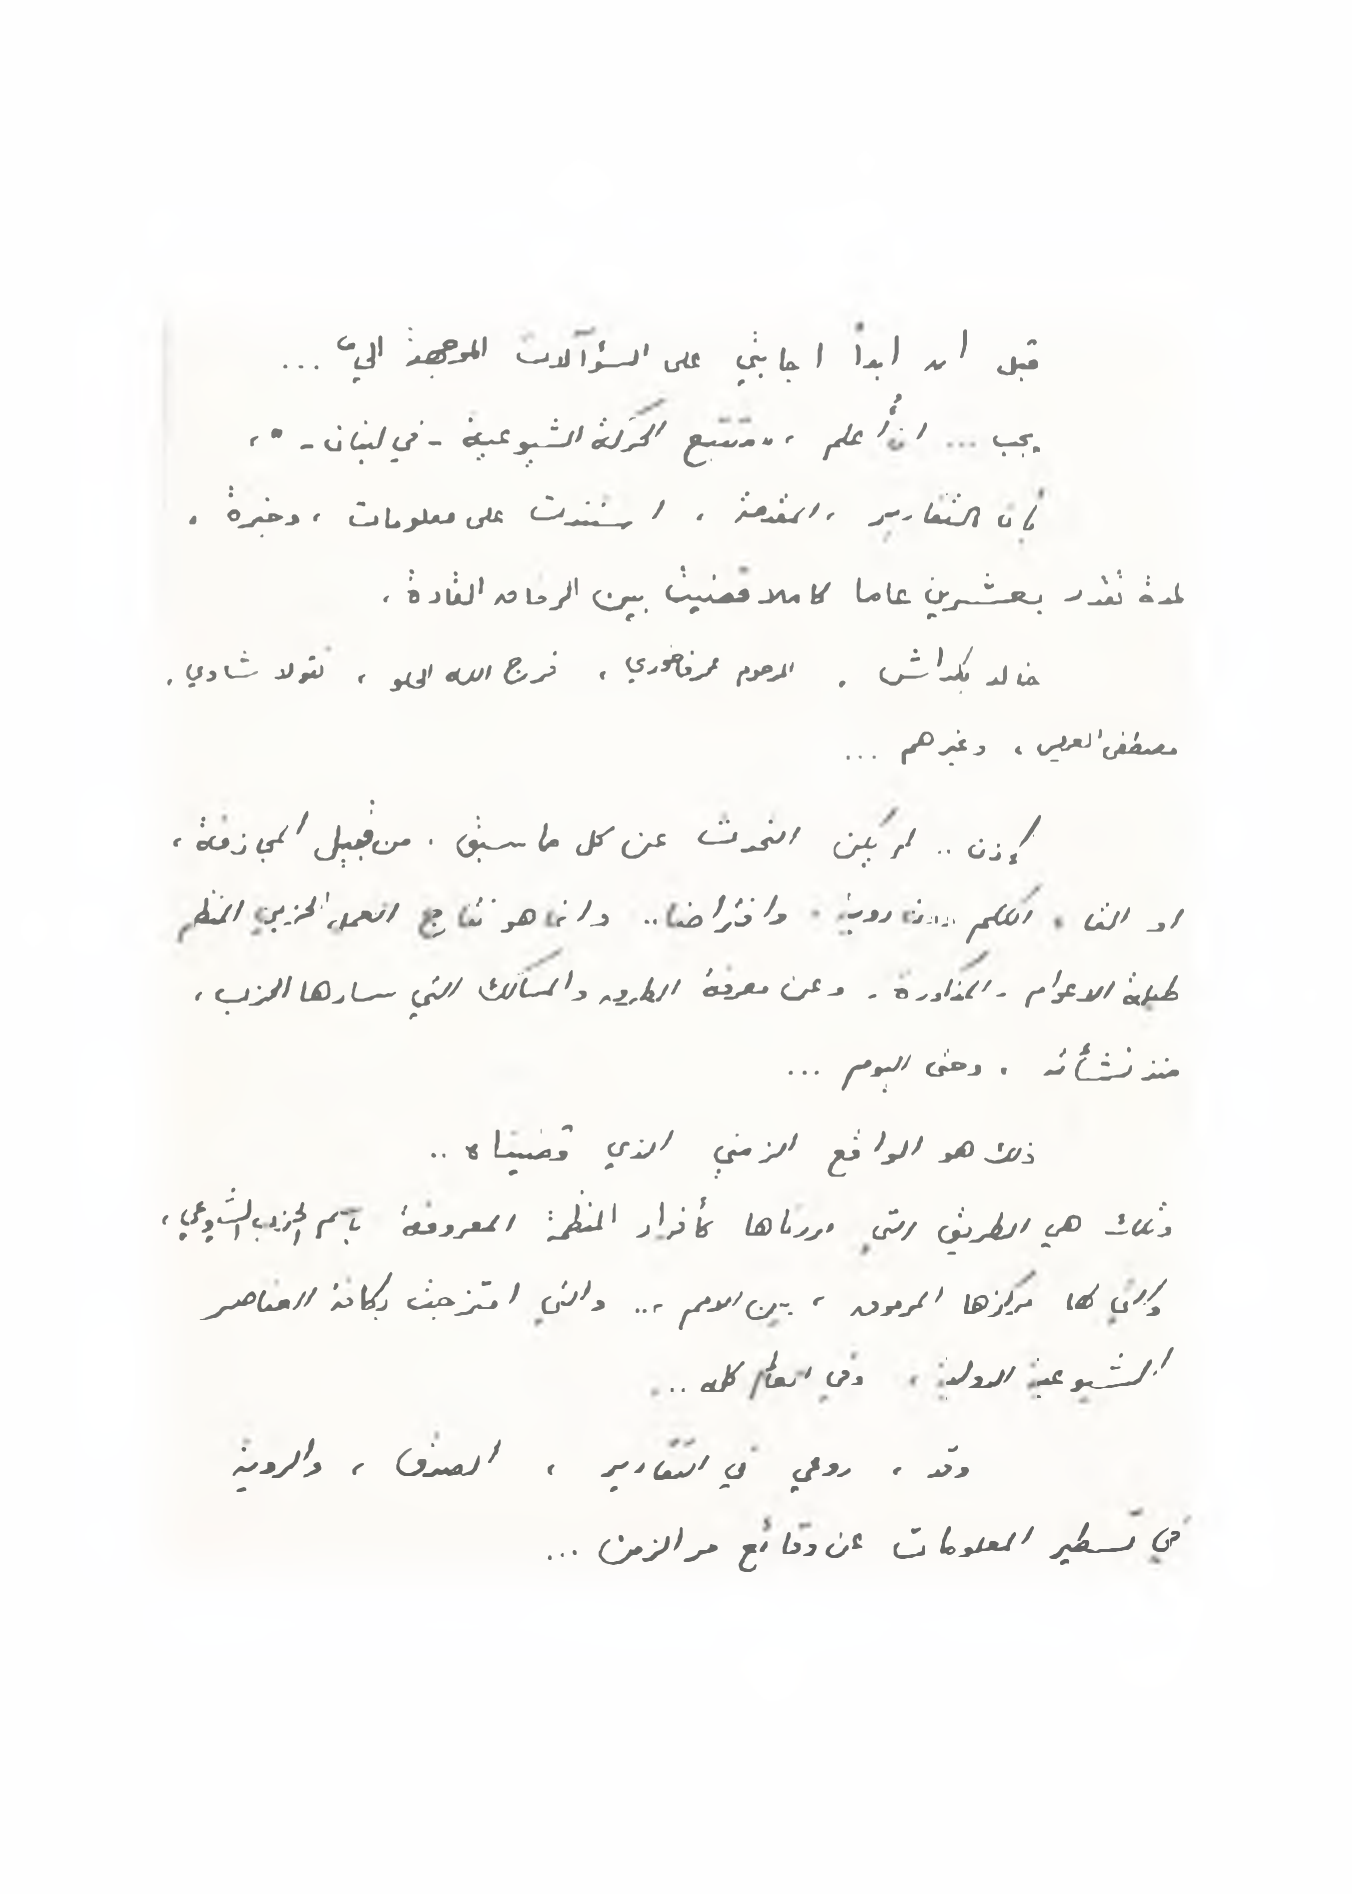 قبل ان ابدأ اجابتي على السؤآلات الموجهة اليّ ...
يجب ... ان أُعلم ، متتبع الحركة الشيوعية - في لبنان - ،
بأن التقارير ، المقدمة ، استندت على معلومات ، وخبرة ،
لمدة تقدر بعشرين عاما كاملا قضيت بين الرفاق القادة ،
خالد بكداش ، المرحوم عمر فاخوري ، فرج الله الحلو ، نقولا شاوي ،
مصطفى العريس ، وغيرهم ...
إذن .. لم يكن التحدث عن كل ما سبق ، من قبيل المجازفة ،
او القاء الكلم دون روية ، وافتراضا .. وانما هو نتاج العمل الحزبي المنظم
طيلة الاعوام ، المذكورة ، وعن معرفة الطريق والمسالك التي سارها الحزب ،
منذ نشأته ، وحتى اليوم ...
ذلك هو الواقع الزمني الذي قضيناه ..
وتلك هي الطريق التي مررناها كأفراد المنظمة المعروفة بآسم الحزب الشيوعي ،
والتي لها مركزها المرموق ، بين الامم ... والتي امتزجت بكافة العناصر
الشيوعية الدولية ، وفي العالم كله ...
وقد ، روعي في التقارير ، الصدق ، والروية
في تسطير المعلومات عن وقائع مر الزمن ...